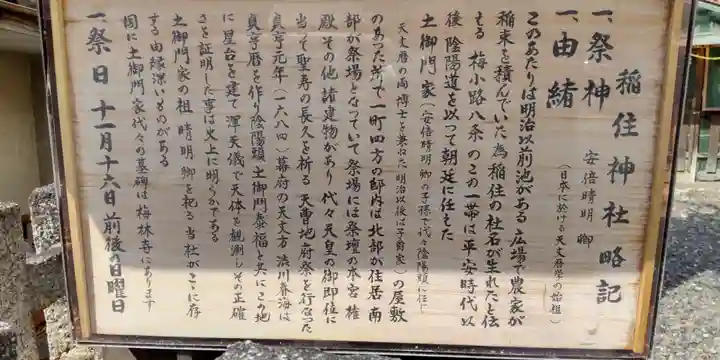 稲住神社略記
一、祭神 安倍晴明卿
(日本に於ける天文暦学の始祖)
一、由緒
このあたりは明治以前池がある広場で農家が
稲束を積んでいた為稲住の社名が生れたと伝
える 梅小路八条のこの一帯は平安時代以
後 陰陽道を以って朝廷に任えた
土御門家(安倍晴明卿の子孫で代々陰陽頭に任じ
天文暦の両博士を兼ねた明治以後は子爵家)の屋敷
のあった所で一町四方の邸内は北部が住居 南
部が祭場となっていて祭場には祭壇の本宮 権
殿その他諸建物があり代々天皇の御即位に
当って聖寿の長久を祈る天曹地府祭を行なった
貞享元年(一六八四)幕府の天文方渋川春海は
貞享暦を作り陰陽頭土御門泰福と共にこの地
に星台を建て渾天儀で天体を観測しその正確
さを証明した事は史上に明らかである
土御門家の祖晴明卿を祀る当社がここに存
する由縁深いものがある
因に土御門家代々の墓碑は梅林寺にあります
一、祭日 十一月十六日前後の日曜日